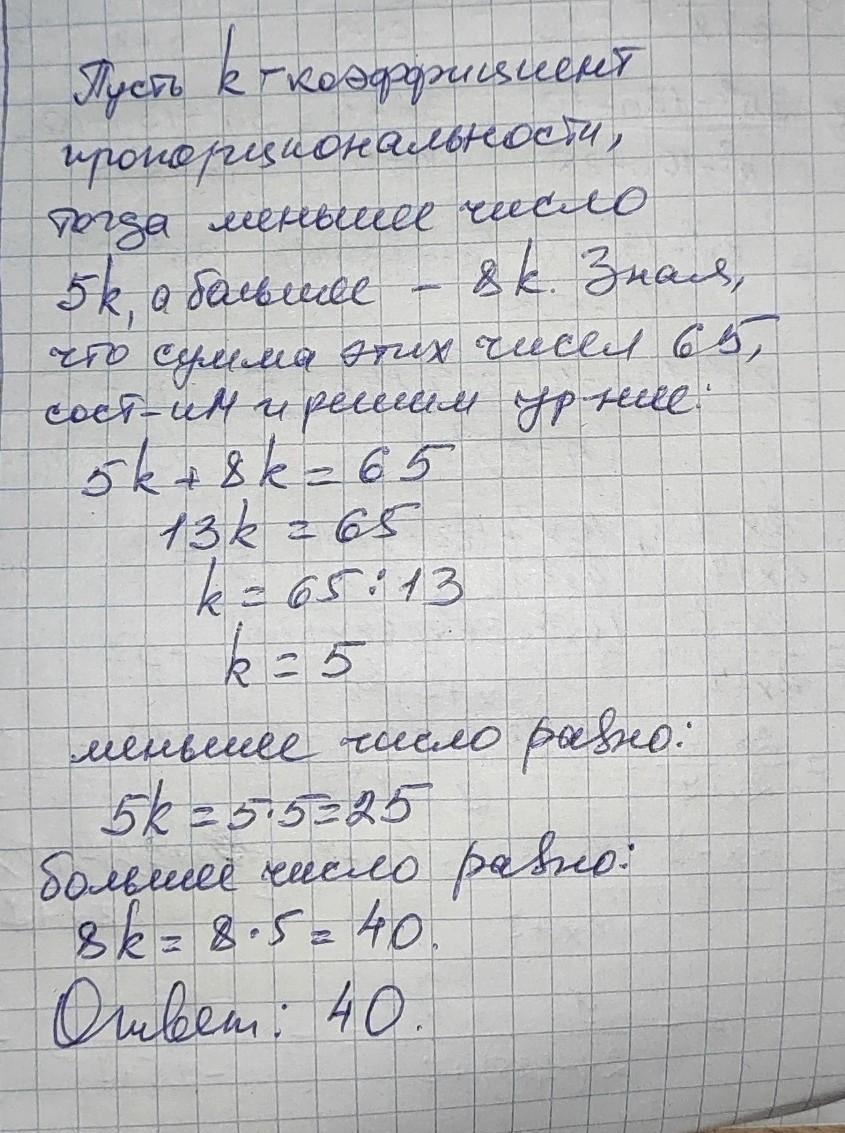 Пусть k - коэффициент
пропорциональности,
тогда меньшее число
5k, а большее - 8k. Зная,
что сумма этих чисел 65,
сост-им и решим ур-ние:
5k + 8k = 65
13k = 65
k = 65 : 13
k = 5
меньшее число равно:
5k = 5·5 = 25
большее число равно:
8k = 8·5 = 40.
Ответ: 40.